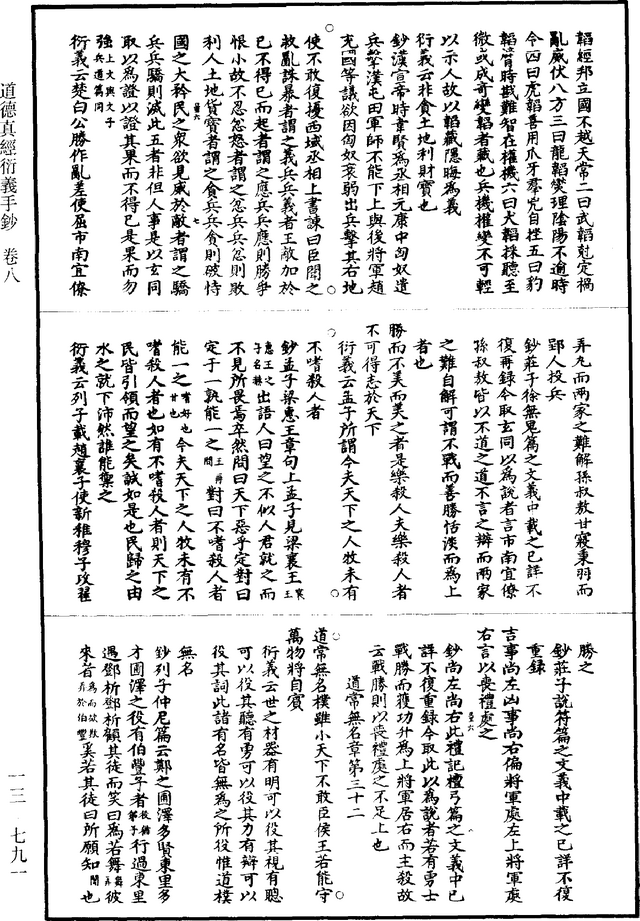 韜經邦立國不越天常二曰武韜尅定禍
亂威伏八方三曰龍韜燮理陰陽不逾時
令四曰虎韜善用爪牙羣兕自挫五曰豹
韜膂時戡難智在權機六曰犬韜採聽至
微或成奇變韜者藏也兵機權變不可輕
以示人故以韜藏隱晦為義
衍義云非貪土地利財寶也
鈔漢宣帝時韋賢為丞相元康中匈奴遣
兵擊漢屯田軍師不能下上與後將軍趙
充國等議欲因匈奴衰弱出兵擊其右地
使不敢復擾西域丞相上書諫曰臣聞之
救亂誅暴者謂之義兵兵義者王敵加於
已不得已而起者謂之應兵兵應則勝爭
恨小故不忍忿怒者謂之忿兵兵忿則敗
利人土地貨寶者謂之貪兵兵貪則破恃
國之大矜民之衆欲見威於敵者謂之驕
兵兵驕則滅此五者非但人事是以玄同
取以為證以證其果而不得已是果而勿
強上文與文子兵道篇同
衍義云楚白公勝作亂差使屈市南宜僚
弄丸而兩家之難解孫叔敖甘寢秉羽而
郢人投兵
鈔莊子徐無鬼篇之文義中載之已詳不
復再録今取玄同以為說者言市南宜僚
孫叔敖皆以不道之道不言之辯而兩家
之難自解可謂不戰而善勝恬淡而為上
者也
勝而不美而美之者是樂殺人夫樂殺人者
不可得志於天下
衍義云孟子所謂今夫天下之人牧未有
不嗜殺人者
鈔孟子梁惠王章句上孟子見梁襄王襄王
惠王之子名赫出語人曰望之不似人君就之而
不見所畏焉卒然問曰天下惡乎定對曰
定于一孰能一之王再問對曰不嗜殺人者
能一之嗜好也甘也今夫天下之人牧未有不
嗜殺人者也如有不嗜殺人者則天下之
民皆引領而望之矣誠如是也民歸之由
水之就下沛然誰能禦之
衍義云列子載趙襄子使新稚穆子攻翟
勝之
鈔莊子說符篇之文義中載之已詳不復
重録
吉事尚左凶事尚右偏將軍處左上將軍處
右言以喪禮處之
鈔尚左尚右此禮記檀弓篇之文義中已
詳不復重録今取此以為說者若有勇士
戰勝而獲功升為上將軍居右而主殺故
云戰勝則以喪禮處之不足上也
道常無名章第三十二
道常無名樸雖小天下不敢臣侯王若能守
萬物將自賓
衍義云世之材器有明可以役其視有聰
可以役其聽有勇可以役其力有辯可以
役其詞此諸有名皆無為之所役惟道樸
無名
鈔列子仲尼篇云鄭之圃澤多賢東里多
才圃澤之役有伯豐子者役猶弟子行過東里
遇鄧析鄧析顧其徒而笑曰為若舞彼
來者奚若其徒曰所願知聞也
道德真經衍義手鈔 卷八
一三 七九一